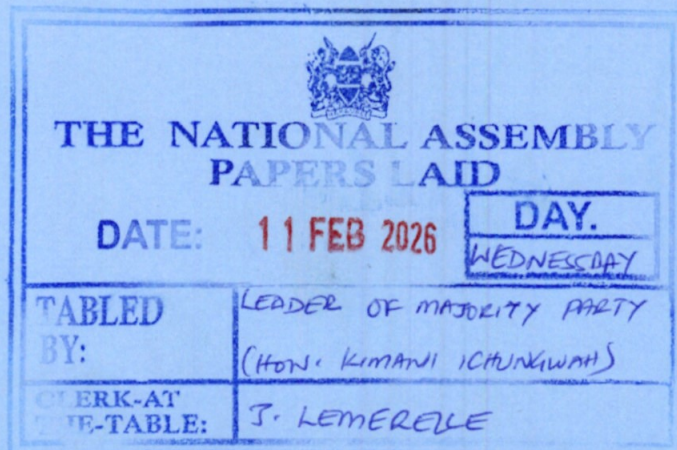 THE NATIONAL ASSEMBLY
PAPERS LAID
DATE: 11 FEB 2026
DAY.
WEDNESSDAY
TABLED BY:
LEADER OF MAJORITY PARTY
(HON. KIMANI ICHUNGWAH)
CLERK-AT
THE-TABLE:
J. LEMERELLE